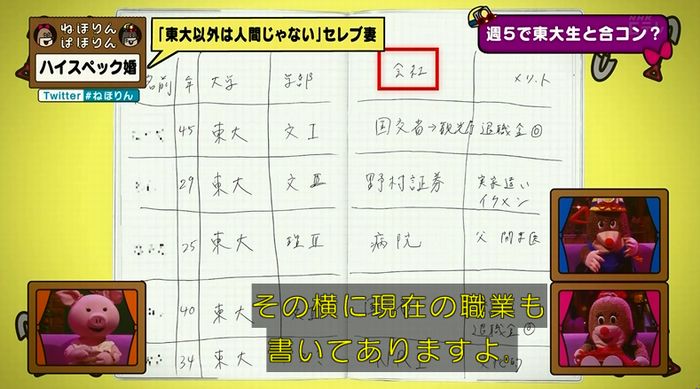 ねほりん
ぱほりん
ハイスペック婚
Twitter #ねほりん
「東大以外は人間じゃない」セレブ妻
週5で東大生と合コン？
NHK
名前 年 大学 学部 会社 メリット
45 東大 文I 国交省→観光庁 退職金◎
29 東大 文III 野村証券 実家遠い
イケメン
25 東大 理III 病院 父 開業医
40 東
退職金◎
34 東大
その横に現在の職業も
書いてありますよ。